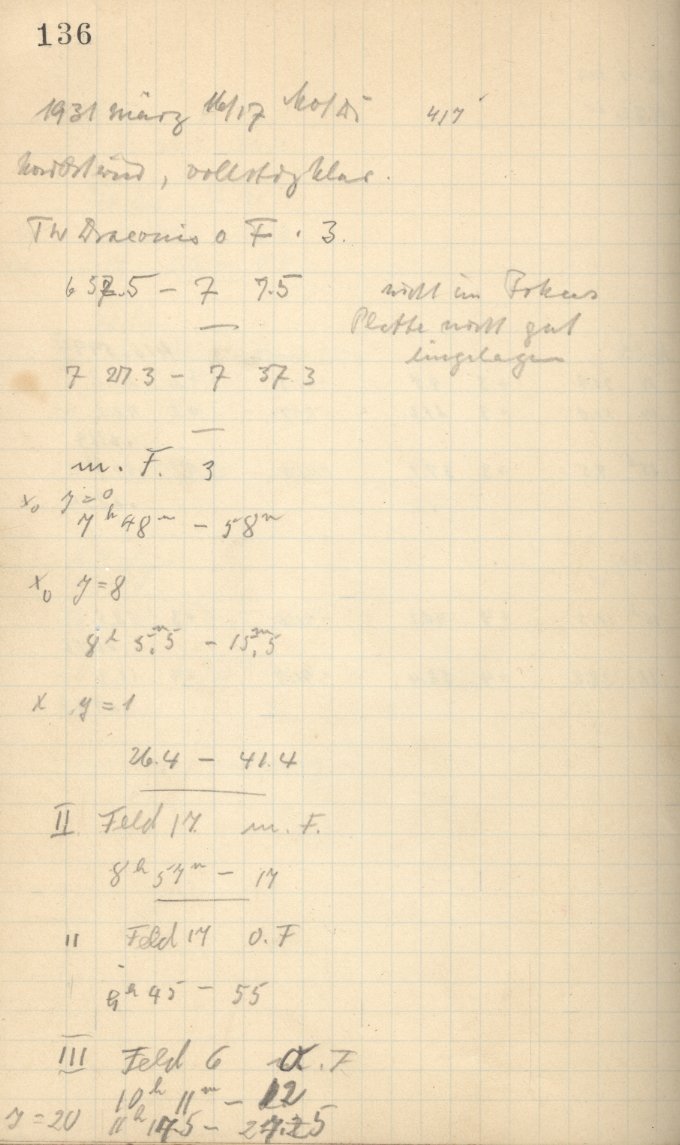 136
1931 März 16/17 Mo/Di 417
Nordostwind, vollst. klar.
TW Draconis o F. 3.
6 57.5 – 7 7.5 nicht im Fokus
Platte nicht gut
7 27.3 – 7 37.3 eingelegen
m. F. 3
x₀ y=0
7ʰ 48ᵐ – 58ᵐ
x₀ y=8
8ʰ 5ᵐ.5 – 15ᵐ.5
x y=1
26.4 – 41.4
II Feld 17. m. F.
8ʰ 57ᵐ – 17
" Feld 17 o. F
9ʰ 45 – 55
III Feld 6 .F
10ʰ 11ᵐ – 12
y=20 11ʰ